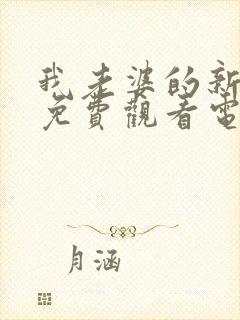 我老婆的新
免費觀看電
月涵